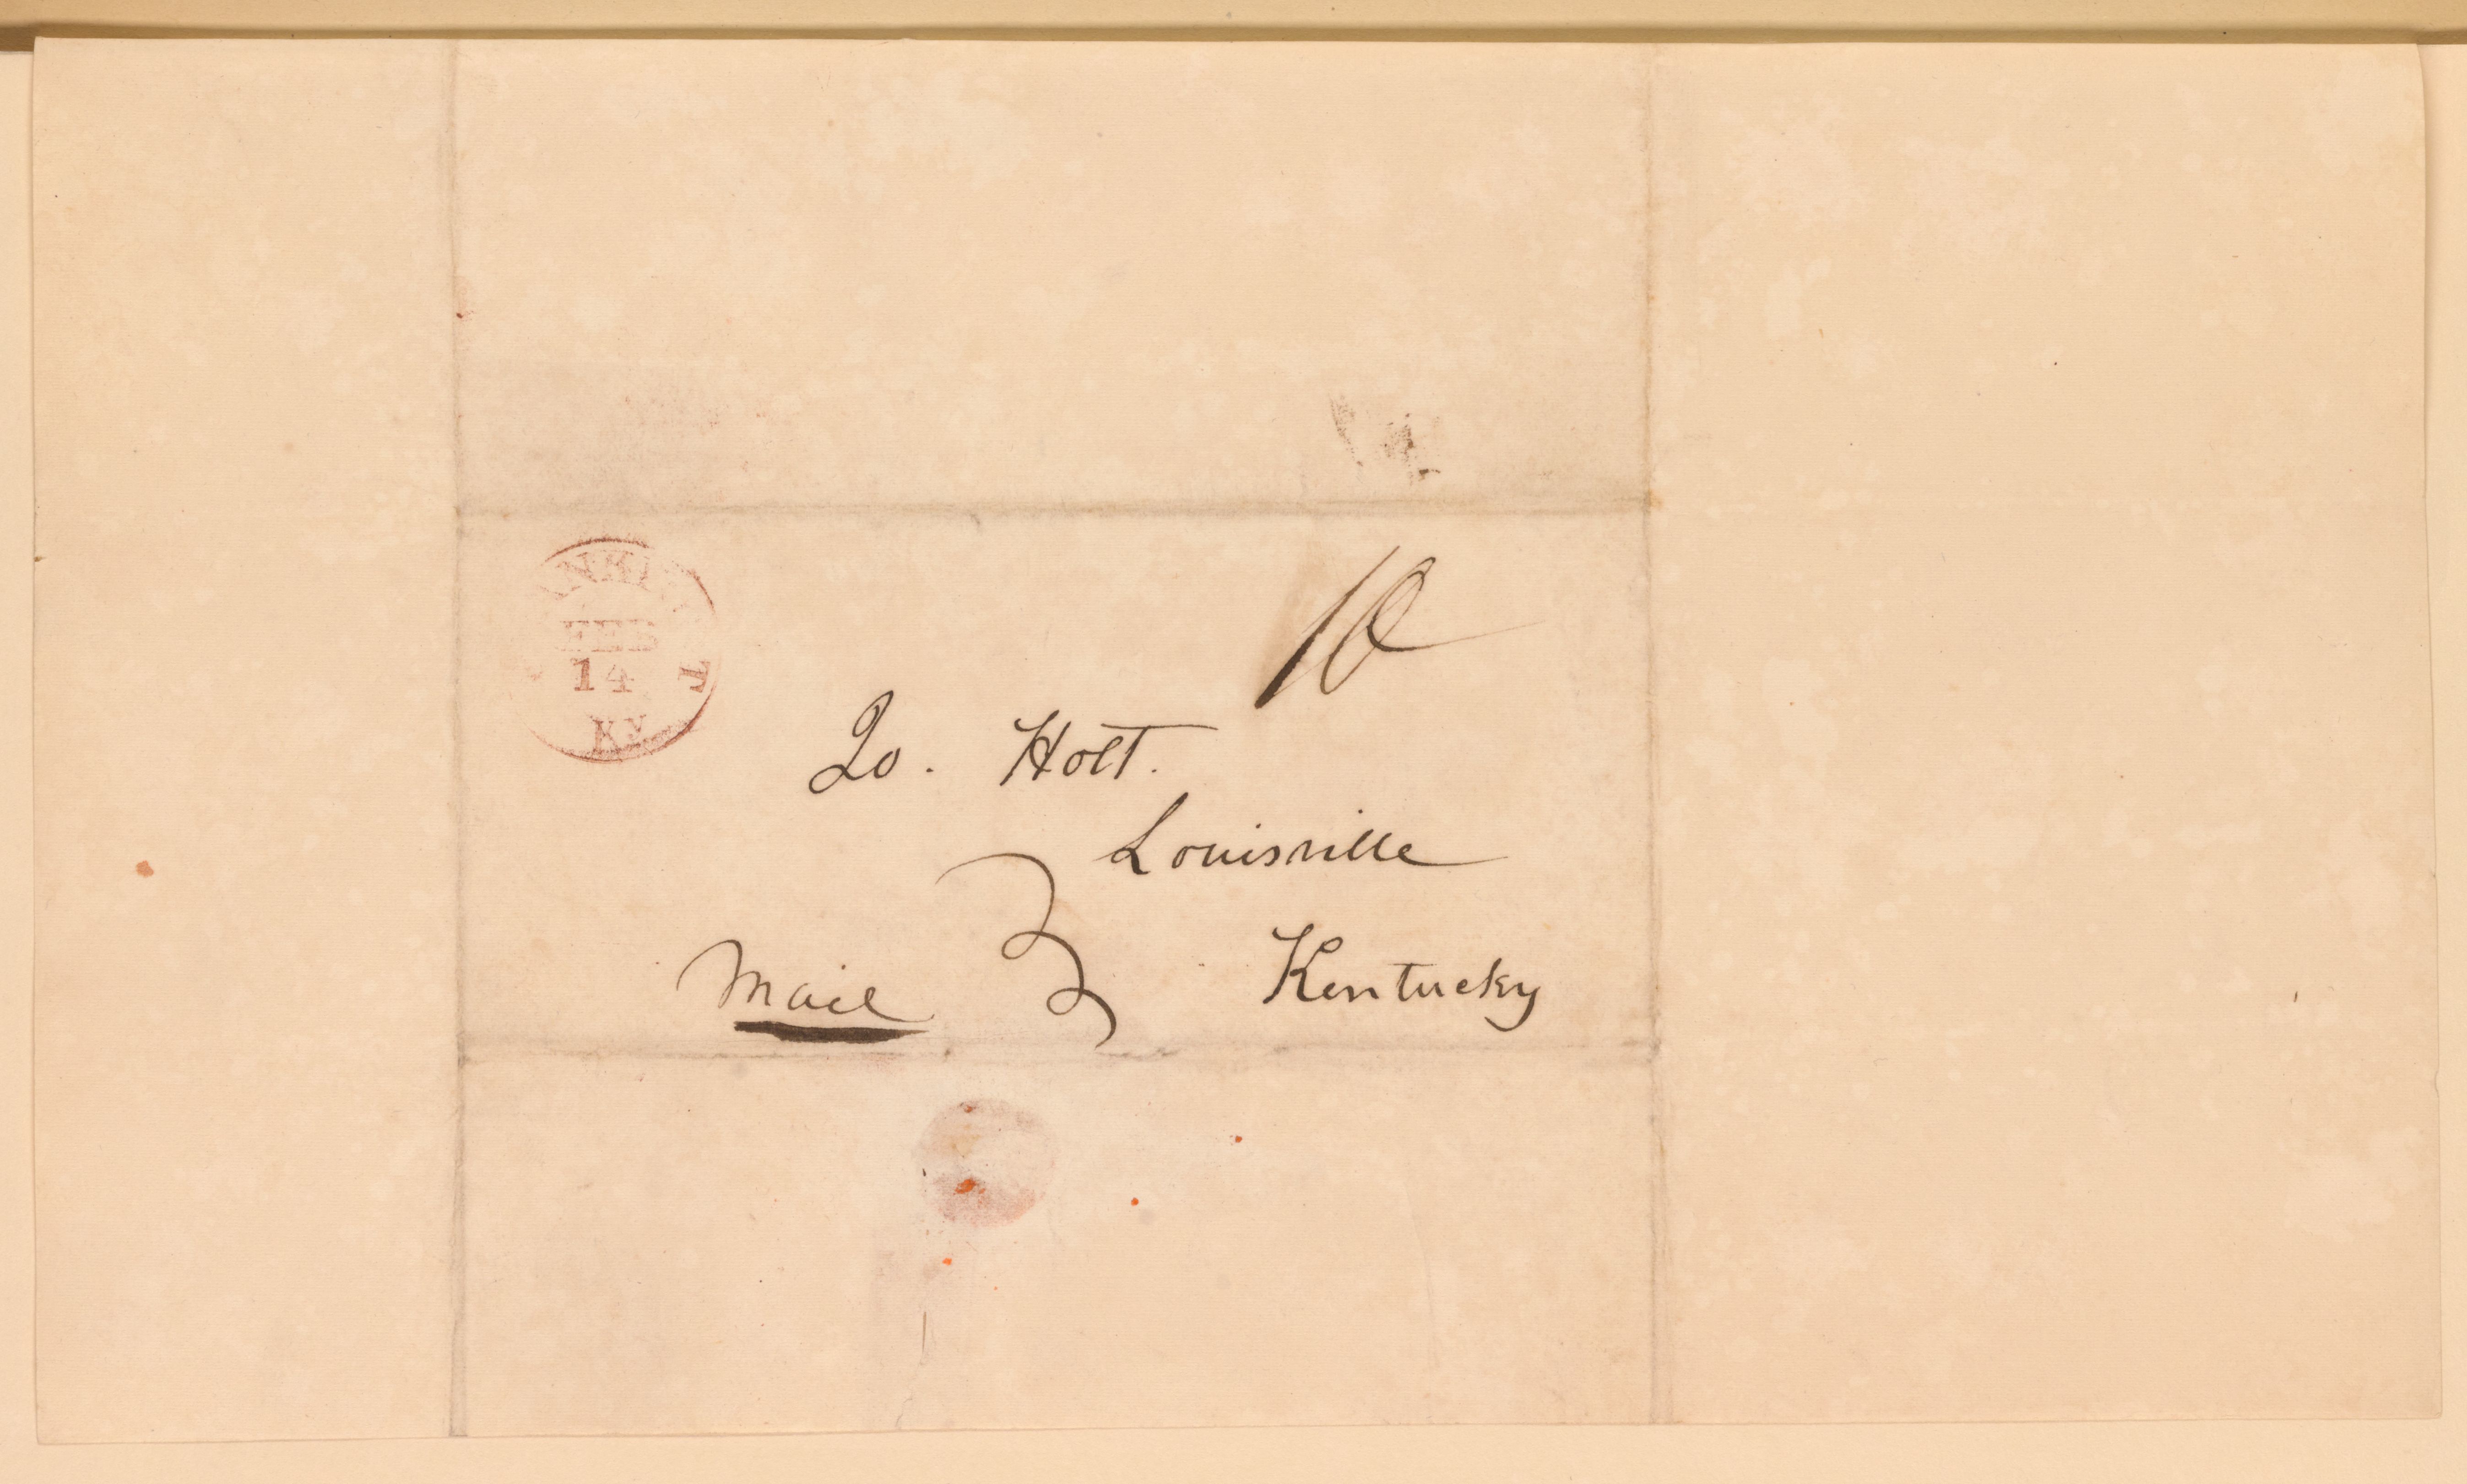 FEB
14
Ky
10
Jo. Holt.
Louisville
Mail Kentucky